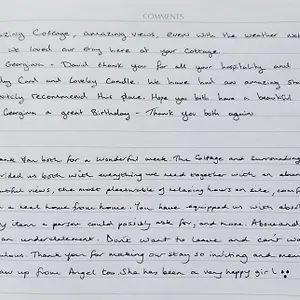 COMMENTS
Amazing Cottage, amazing views, even with the weather not
we loved our stay here at your cottage.
Georgina - David thank you for all your hospitality and
Card and Lovely Candle. We have had an amazing
recommend this place. Hope you both have a beautiful
Georgina a great Birthday - Thank you both again
Thank You both for a wonderful week. The Cottage and surrounding
us both with everything we need together with an
views, the most pleasurable of relaxing hours on site,
a real home from home. You have equipped us with
item a person could possibly ask for, and more.
an understatement. Don't want to leave and can't
Thank you for making our stay so inviting and
up from Angel too. She has been a very happy girl